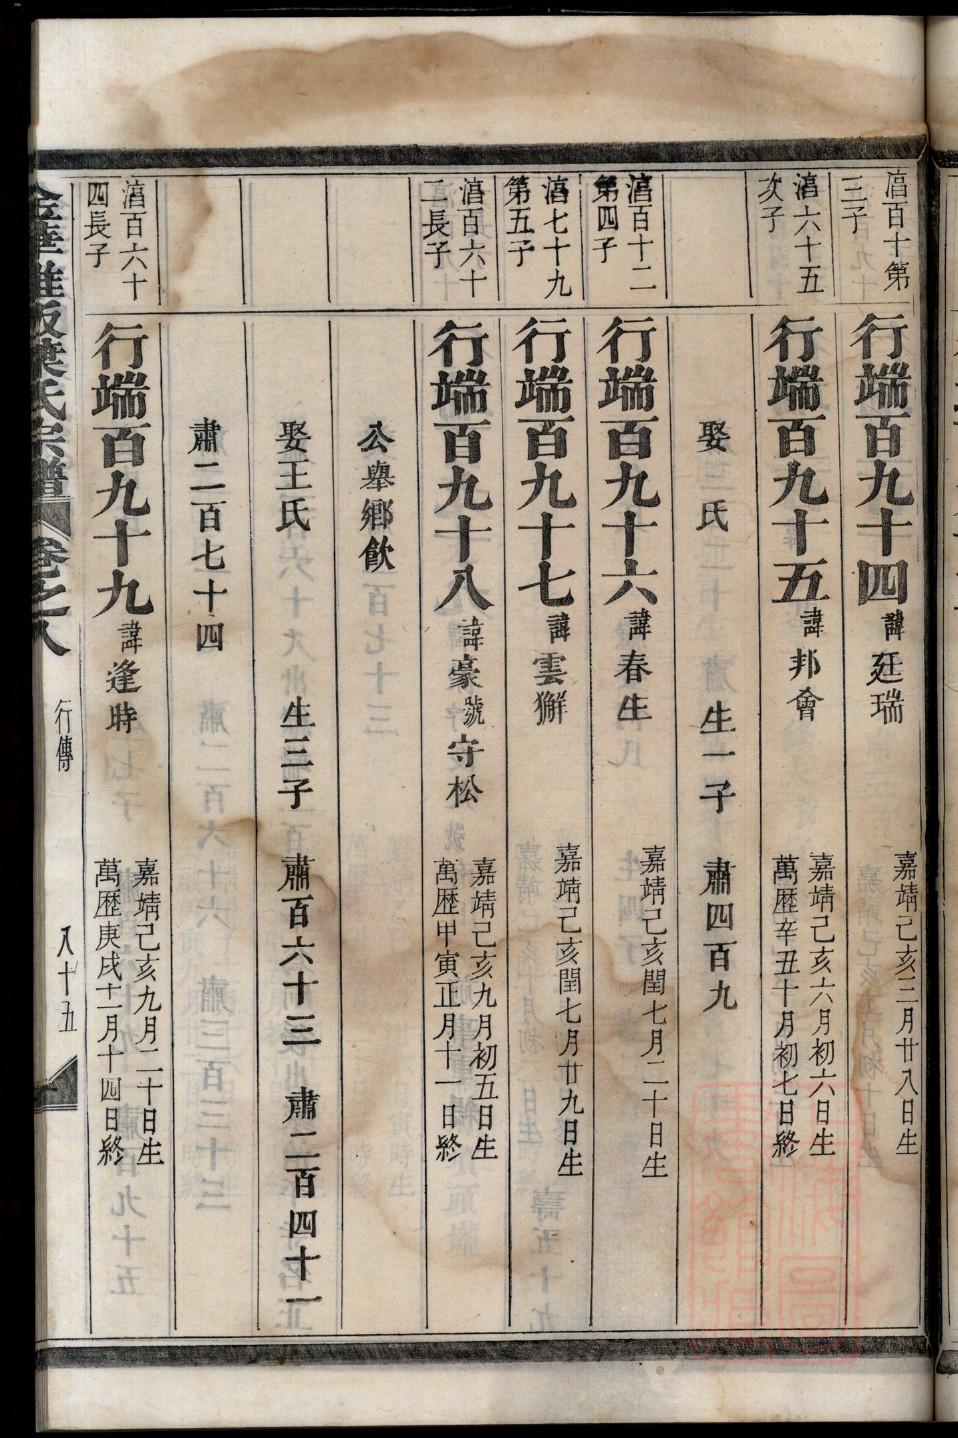 湻百十第
三子
行端百九十四 諱廷瑞
嘉靖己亥三月廿八日生
湻六十五
次子
行端百九十五 諱邦會
嘉靖己亥六月初六日生
萬歷辛丑十月初七日終
娶 氏 生一子 肅四百九
湻百十二
第四子
行端百九十六 諱春生
嘉靖己亥閏七月二十日生
湻七十九
第五子
行端百九十七 諱雲獬
嘉靖己亥閏七月廿九日生
湻百六十
二長子
行端百九十八 諱豪號守松
嘉靖己亥九月初五日生
萬歷甲寅正月十一日終
公舉鄉飲
娶王氏 生三子 肅百六十三 肅二百四十一
肅二百七十四
湻百六十
四長子
行端百九十九 諱逢時
嘉靖己亥九月二十日生
萬歷庚戌十二月十四日終
氏宗譜 卷之八 行傳 八十五